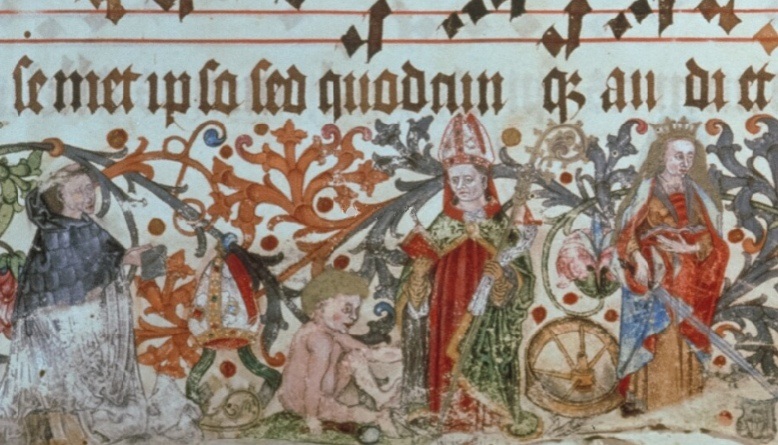 semet ip so sed quodcun qꝫ au di et